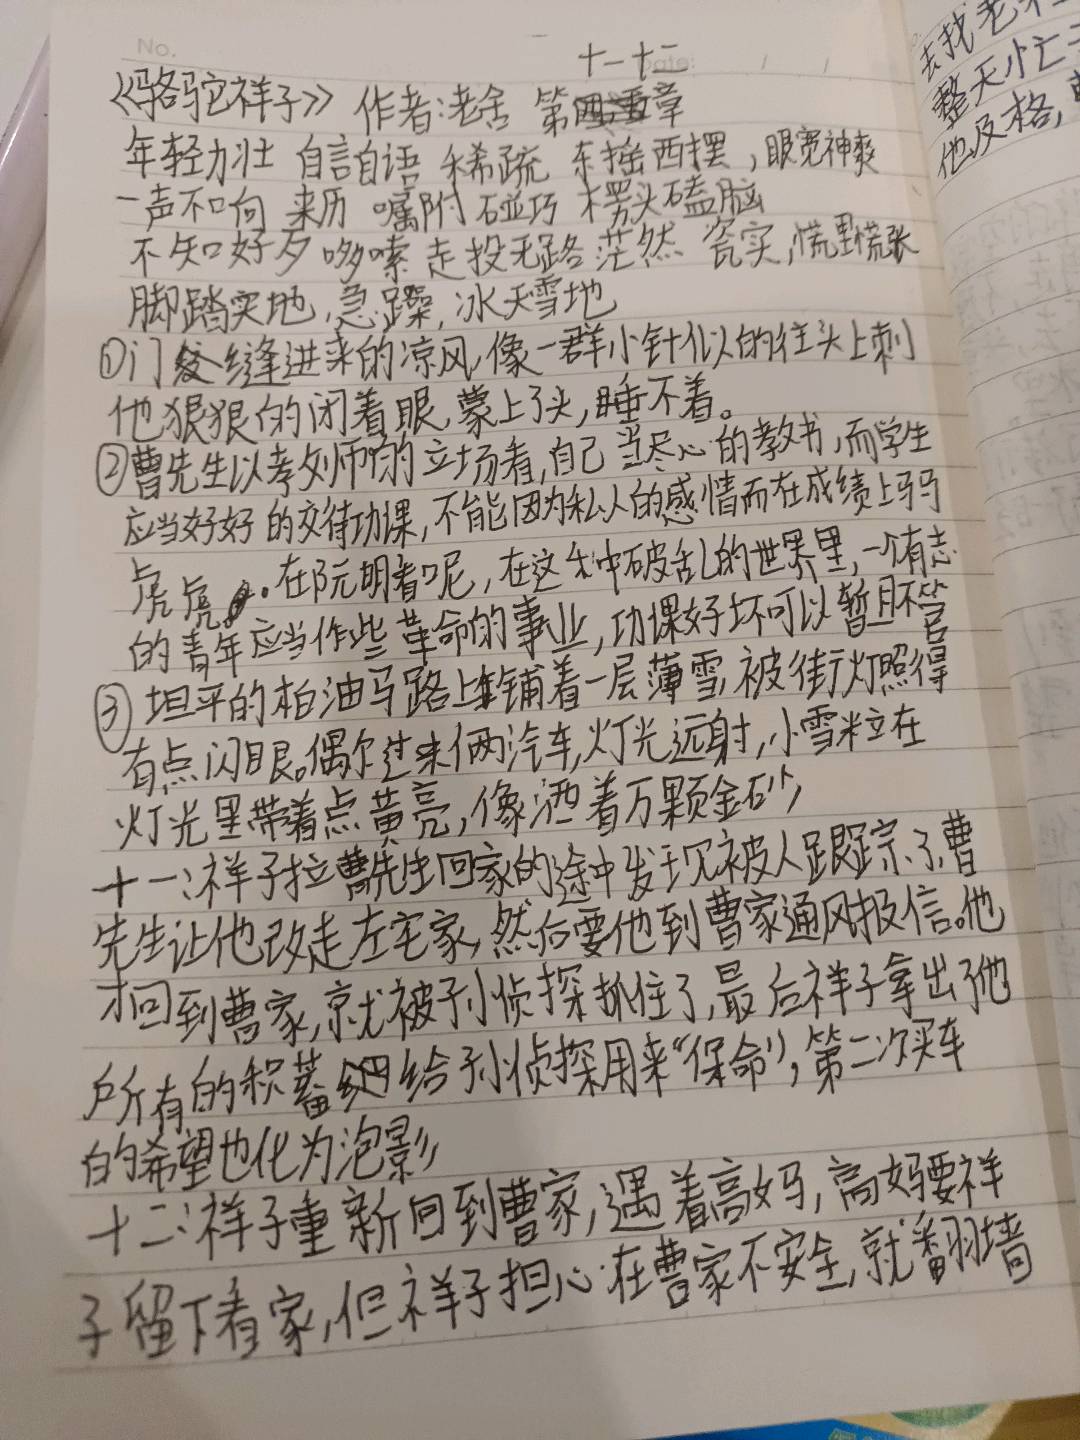 No.
Date: / /
十一十二
《骆驼祥子》 作者:老舍 第章
年轻力壮 自言自语 稀疏 东摇西摆,眼宽神爽
一声不向 来历 嘱附 碰巧 楞头磕脑
不知好歹 哆嗦 走投无路 茫然 瓷实,慌里慌张
脚踏实地,急躁,冰天雪地
①门缝进来的凉风,像一群小针似的往头上刺
他狠狠的闭着眼,蒙上了头,睡不着。
②曹先生以老师的立场看,自己当尽心的教书,而学生
应当好好的交待功课,不能因为私人的感情而在成绩上马马
虎虎。在阮明看呢,在这种破乱的世界里,一个有志
的青年应当作些革命的事业,功课好坏可以暂且不管
③坦平的柏油马路上铺着一层薄雪,被街灯照得
有点闪眼。偶尔过来俩汽车,灯光远射,小雪粒在
灯光里带着点黄亮,像洒着万颗金砂,
十一:祥子拉曹先生回家的途中发现被人跟踪了,曹
先生让他改走左宅家,然后要他到曹家通风报信。他
才回到曹家,就被孙侦探抓住了,最后祥子拿出了他
所有的积蓄给孙侦探用来“保命”,第二次买车
的希望也化为泡影,
十二:祥子重新回到曹家,遇着高妈,高妈要祥
子留下看家,但祥子担心在曹家不安全,就翻墙
去找老
整天忙
他及格,